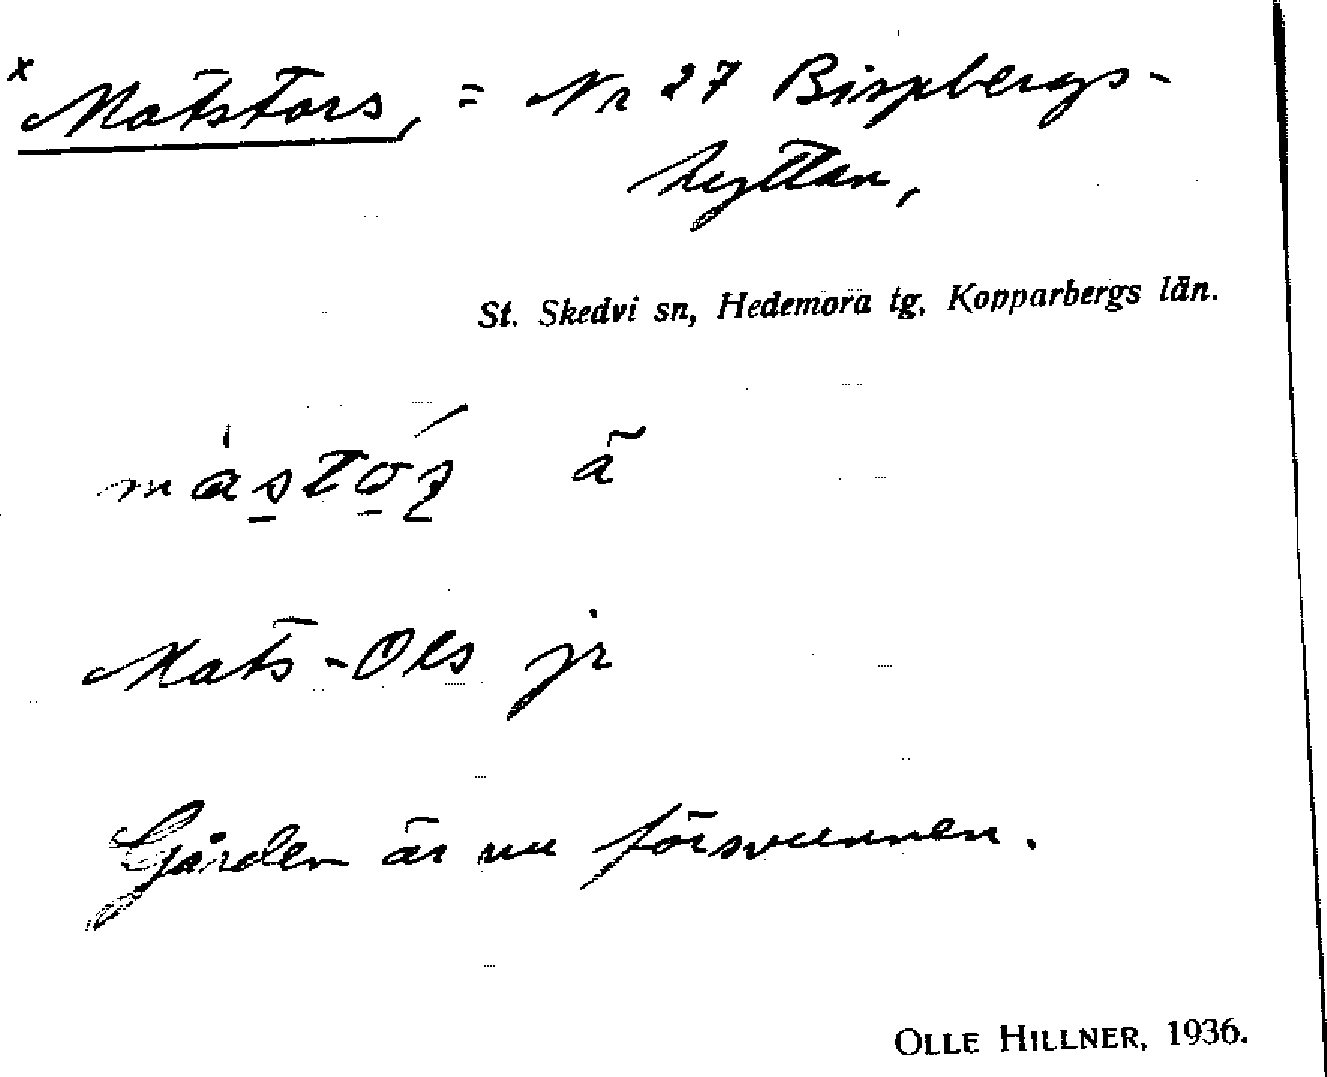 x Matstors, = Nr 27 Bispbergs-
hyttan,
St. Skedvi sn, Hedemora tg, Kopparbergs län.
ä
Mats-Ols jr
Gården är nu försvunnen.
OLLE HILLNER, 1936.